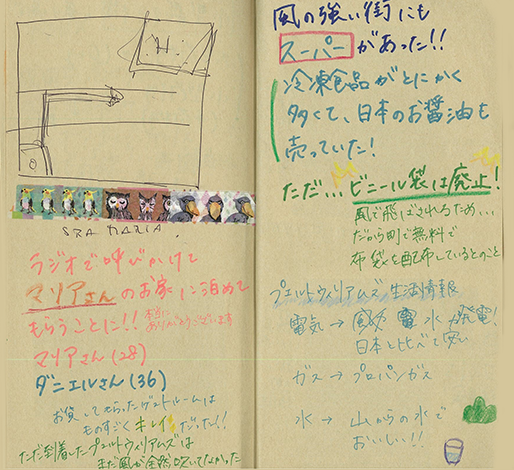 H
SRA MARIA.
ラジオで呼びかけて
マリアさんのお家に泊めて
もらうことに!! 本当に
ありがとうございます
マリアさん(28)
ダニエルさん(36)
お貸してもらったゲストルームは
ものすごくキレイだった!!
ただ到着したプエルトウィリアムズは
まだ風が全然吹いてなかった
風の強い街にも
スーパーがあった!!
冷凍食品がとにかく
多くて、日本のお醤油も
売っていた!
ただ... ビニール袋は廃止!
風で飛ばされるため...
だから町で無料で
布袋を配布しているとのこと
プエルトウィリアムズ生活情報
電気→ 水力発電!
日本と比べて安い
ガス→プロパンガス
水→山からの水で
おいしい!!